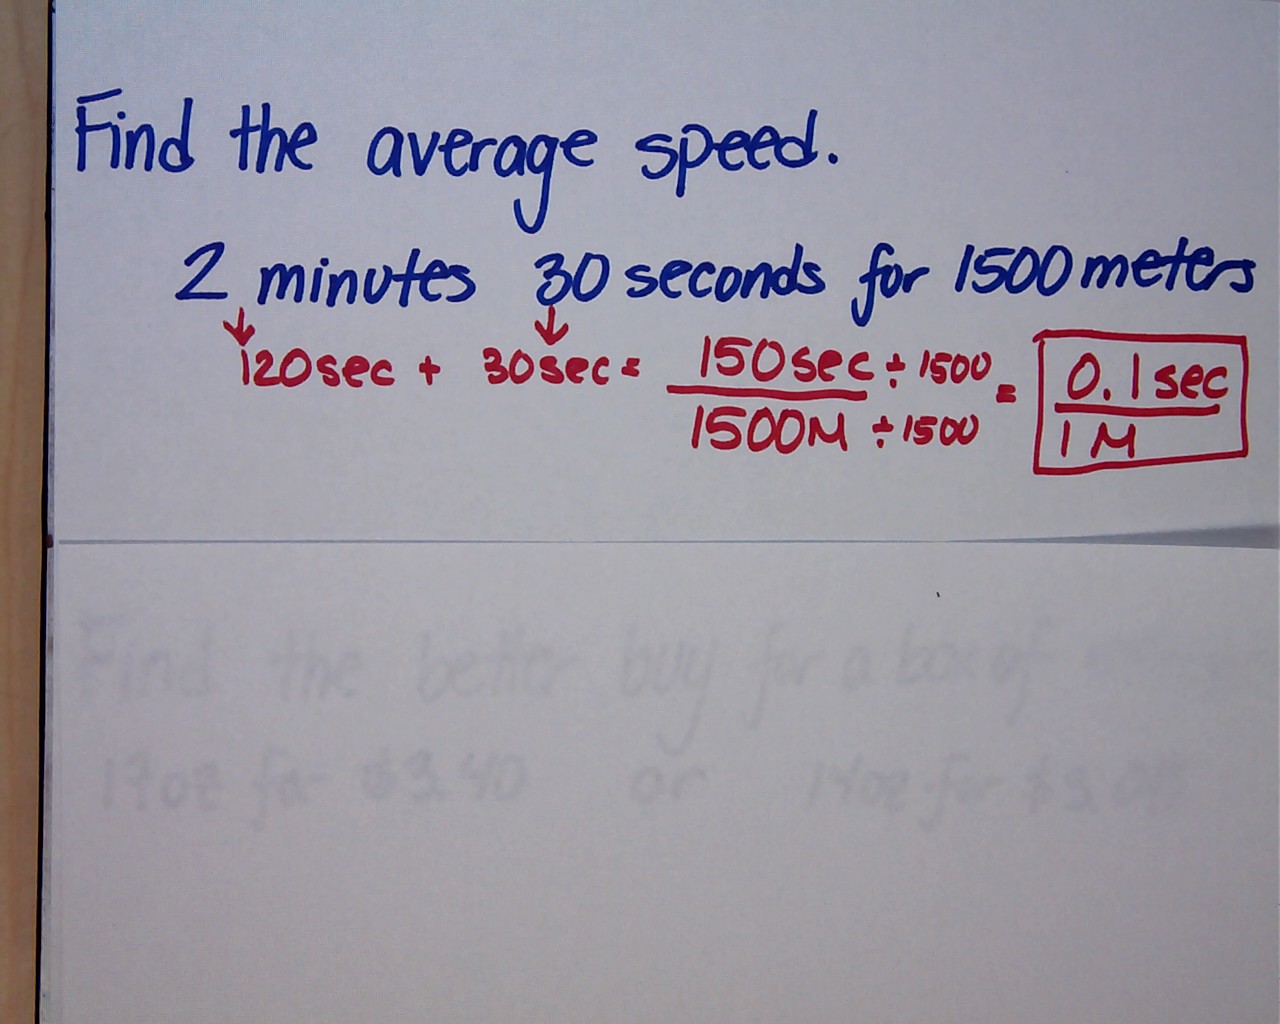 Find the average speed.
2 minutes 30 seconds for 1500 meters
120sec + 30sec = 150sec ÷ 1500 = 0.1sec
1500M ÷ 1500 1 M
Find the better buy for a box of
17oz for $3.40 or 14oz for